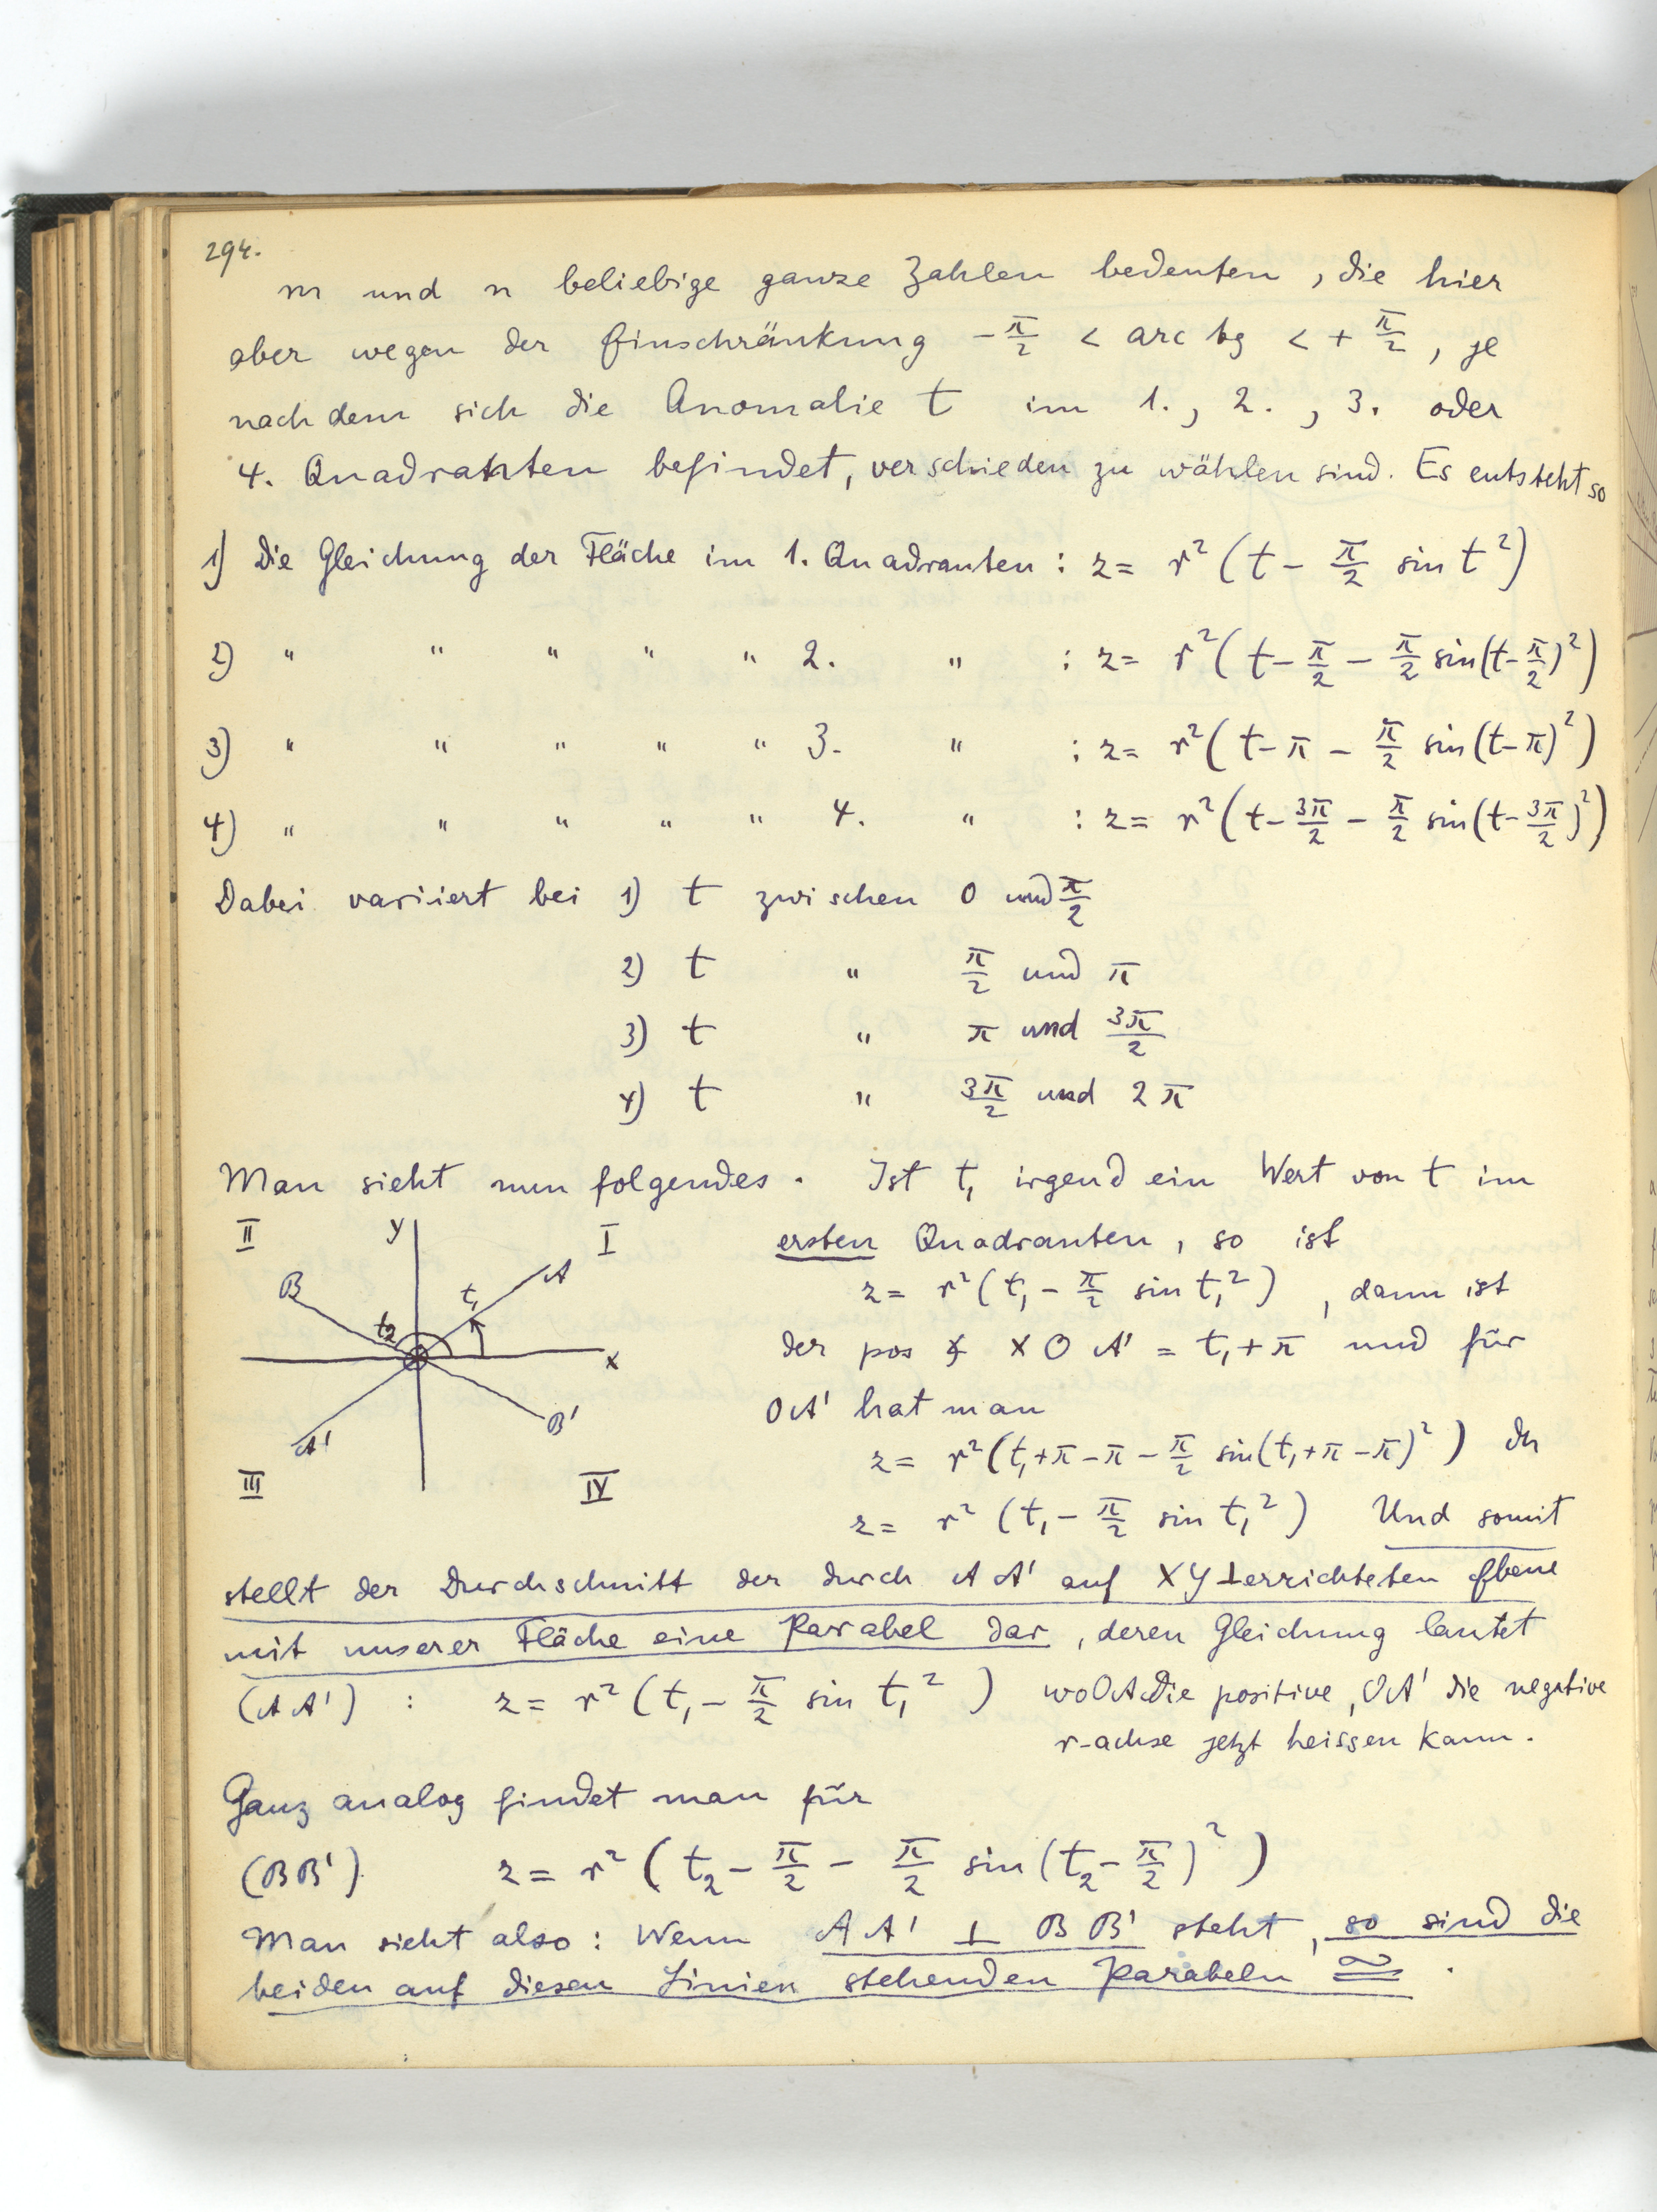 294.
m und n beliebige ganze Zahlen bedeuten, die hier
aber wegen der Einschränkung -π/2 < arc tg < + π/2, je
nach dem sich die Anomalie t im 1., 2., 3. oder
4. Quadranten befindet, verschieden zu wählen sind. Es entsteht so
1) Die Gleichung der Fläche im 1. Quadranten : z = r² (t - π/2 sin t²)
2) " " " " " 2. " : z = r² (t - π/2 - π/2 sin(t - π/2)²)
3) " " " " " 3. " : z = r² (t - π - π/2 sin (t - π)²)
4) " " " " " 4. " : z = r² (t - 3π/2 - π/2 sin (t - 3π/2)²)
Dabei variiert bei 1) t zwischen 0 und π/2
2) t " π/2 und π
3) t " π und 3π/2
4) t " 3π/2 und 2π
Man sieht nun folgendes. Ist t₁ irgend ein Wert von t im
II y I
B t₂ t₁ A
x
A' B'
III IV
ersten Quadranten, so ist
z = r² (t₁ - π/2 sin t₁²), dann ist
der pos ∢ X O A' = t₁ + π und für
OA' hat man
z = r² (t₁ + π - π - π/2 sin (t₁ + π - π)²) dh
z = r² (t₁ - π/2 sin t₁²) Und somit
stellt der Durchschnitt der durch AA' auf XY ⊥ errichteten Ebene
mit unserer Fläche eine Parabel dar, deren Gleichung lautet
(AA') : z = r² (t₁ - π/2 sin t₁²) wo OA die positive, OA' die negative
r-achse jetzt heissen kann.
Ganz analog findet man für
(BB') z = r² (t₂ - π/2 - π/2 sin (t₂ - π/2)²)
Man sieht also: Wenn AA' ⊥ BB' steht, so sind die
beiden auf diesen Linien stehenden Parabeln ≅.